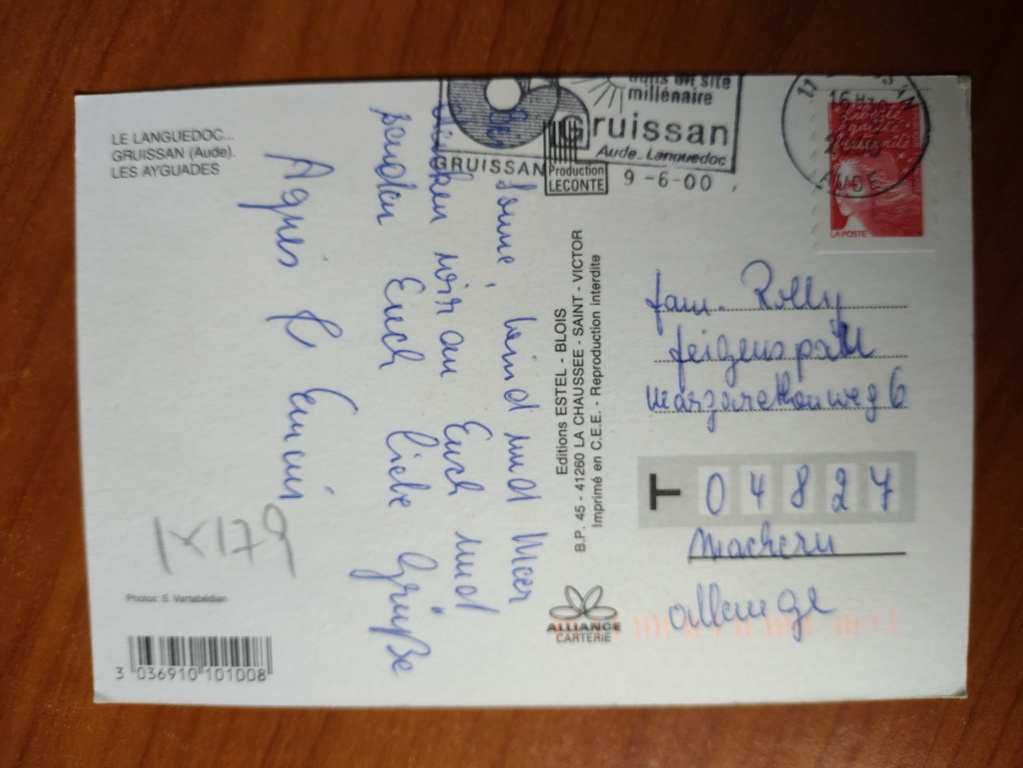 LE LANGUEDOC...
GRUISSAN (Aude).
LES AYGUADES
Bei
Sonne, Wind und Meer
denken wir an Euch und
senden Euch liebe Grüße
Agnes &
1x179
Photos: S. Vartabédian
3 036910 101008
GRUISSAN
Production
LECONTE
dans un site
millénaire
Gruissan
Aude-Languedoc
9-6-00
16 H
AUDE
Liberté
égalité
fraternité
LA POSTE
Editions ESTEL - BLOIS
B.P. 45 - 41260 LA CHAUSSEE - SAINT - VICTOR
Imprimé en C.E.E. - Reproduction interdite
ALLIANCE
CARTERIE
Fam. Rolly
Margarethenweg 6
T 04827
Machern